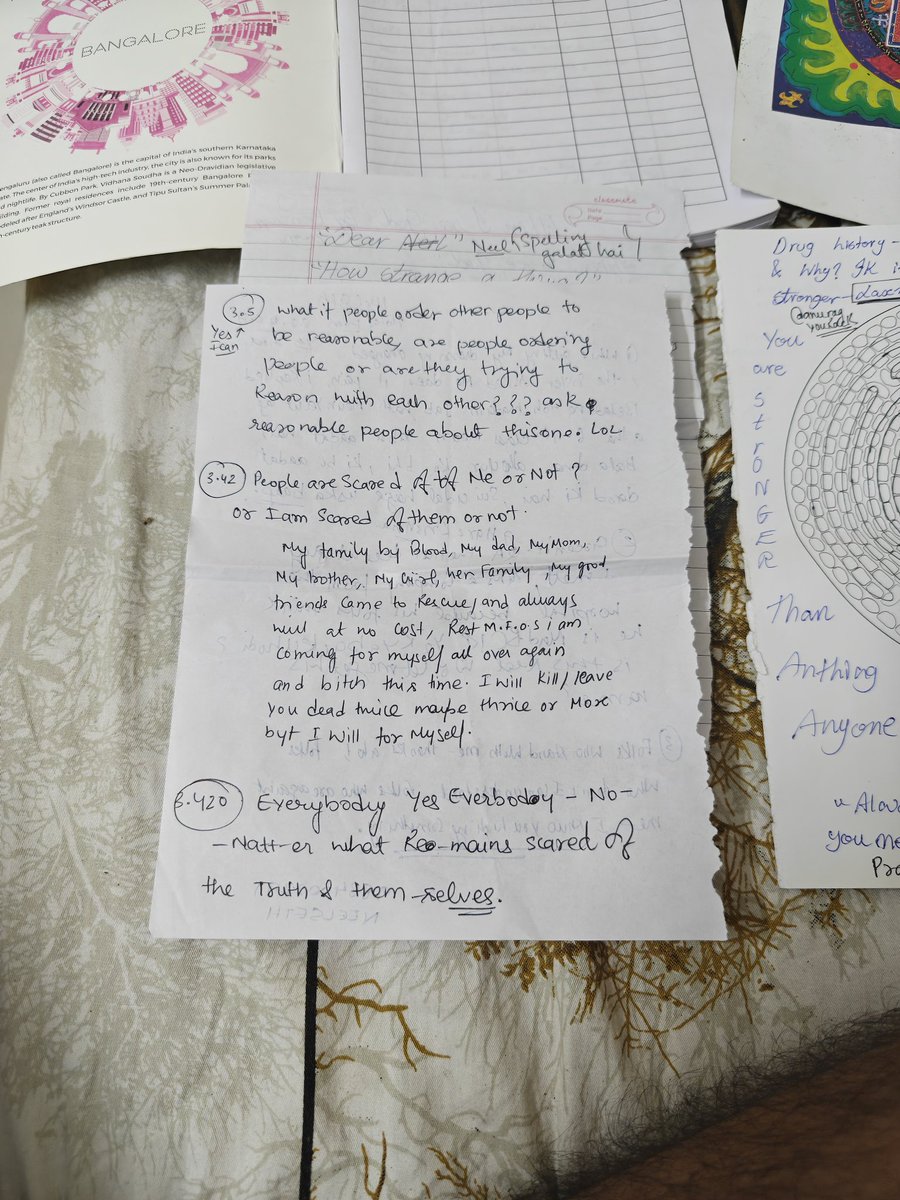 BANGALORE
engaluru (also called Bangalore) is the capital of India's southern Karnataka
ate. The center of India's high-tech industry, the city is also known for its parks
d nightlife. By Cubbon Park, Vidhana Soudha is a Neo-Dravidian legislative
ilding. Former royal residences include 19th-century Bangalore
deled after England's Windsor Castle, and Tipu Sultan's Summer Pala
h-century teak structure.
classmate
Date
Page
"Dear Neel" Neel (Spelling
galat hai)
"How strange a
3.5 what if people order other people to
Yes↑
I can
be reasonable, are people ordering
people or are they trying to
Reason with each other??? ask
reasonable people about this one. LOL
3.42 People are Scared of of Me or Not?
or I am Scared of them or not.
My family by Blood, My dad, My Mom,
My brother, My Girl, her Family, My good
friends came to Rescue/and always
will at no cost, Rest M.F.O.S i am
coming for myself all over again
and bitch this time. I will kill/leave
you dead twice maybe thrice or More
but I will for Myself.
3.420 Everybody Yes Everbody - No-
-Natt-er what Reo-mains scared of
the Truth & them-selves.
Drug history -
& Why? Ik i
stronger-
You
are
S
t
r
O
N
G
E
R
Than
Anthing
Anyone
you me